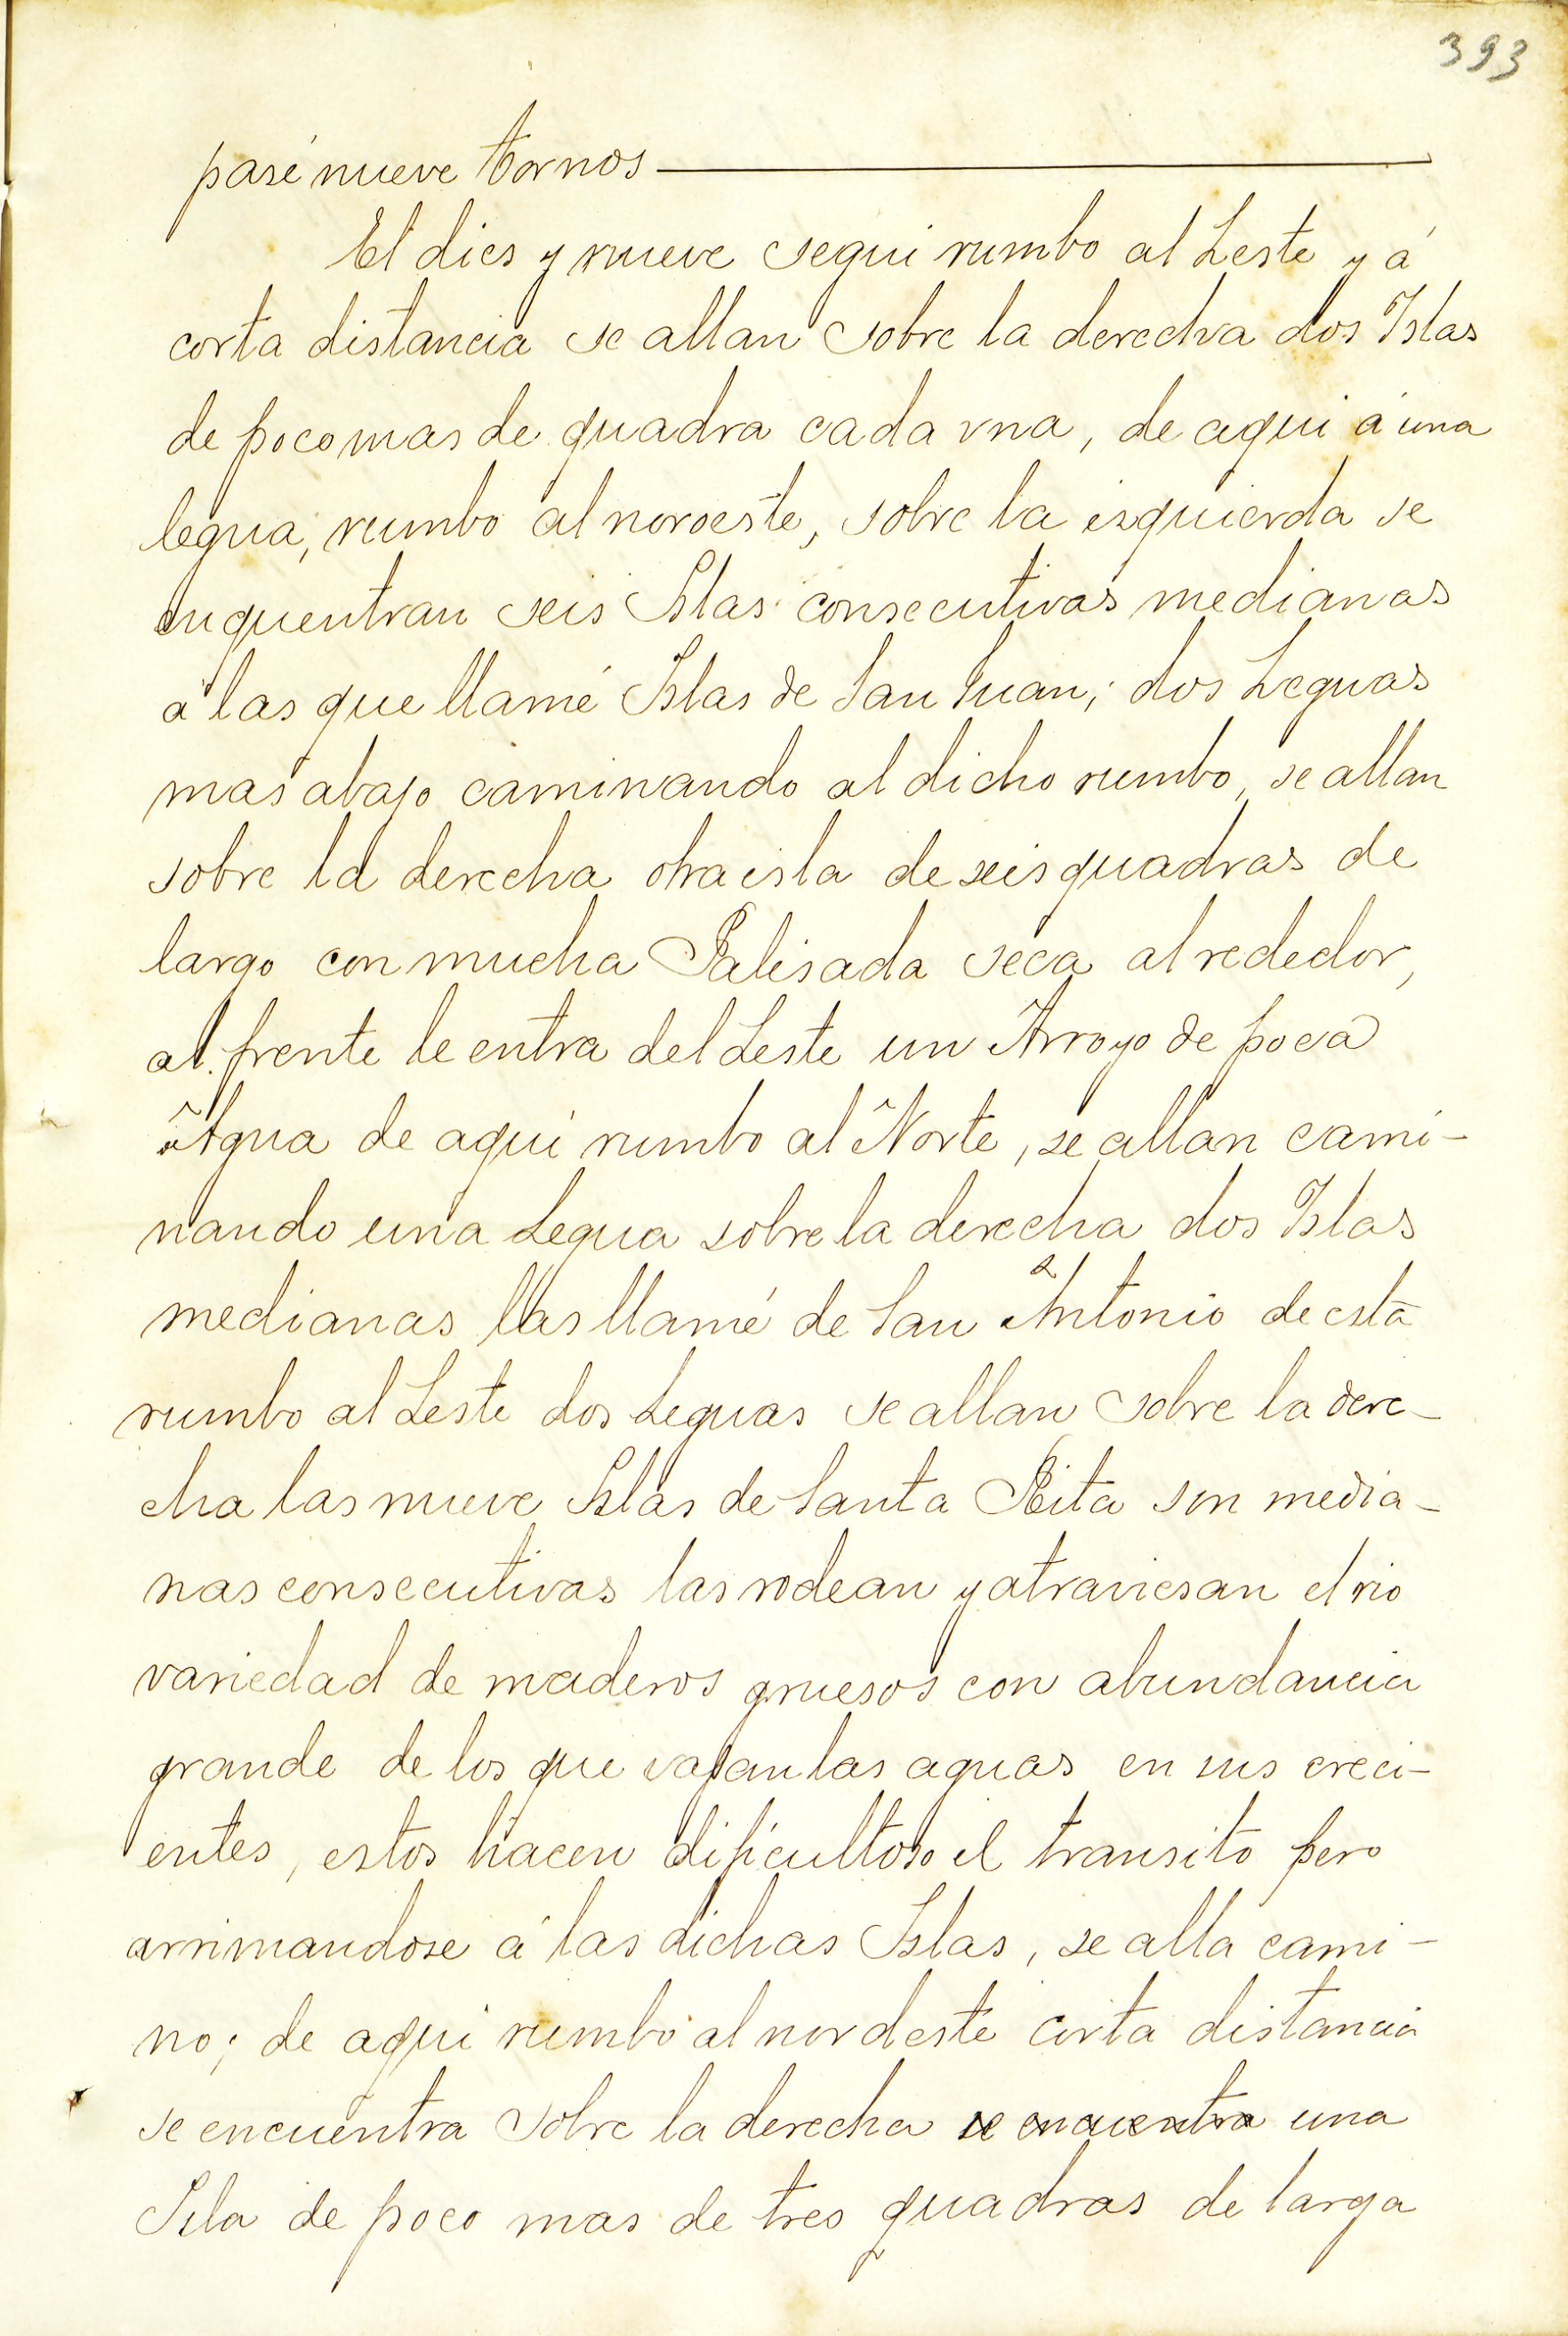 393
pasé nueve tornos
El dies y nueve segui rumbo al Leste y á
corta distancia se allan sobre la derecha dos Islas
de poco mas de quadra cada vna, de aqui á una
legua, rumbo al noroeste, sobre la isquierda se
enquentran seis Islas consecutivas medianas
á las que llamé Islas de San Juan; dos Leguas
mas abajo caminando al dicho rumbo, se allan
sobre la derecha otra isla de seis quadras de
largo con mucha Palisada seca al rededor,
al frente le entra del Leste un Arroyo de poca
Agua de aqui rumbo al Norte, se allan cami-
nando una Legua sobre la derecha dos Islas
medianas las llamé de San Antonio de esta
rumbo al Leste dos Leguas se allan sobre la dere-
cha las nueve Islas de Santa Rita son media-
nas consecutivas las rodean y atraviesan el rio
variedad de maderos gruesos con abundancia
grande de los que vajan las aguas en sus creci-
entes, estos hacen dificultoso el transito pero
arrimandose á las dichas Islas, se alla cami-
no; de aqui rumbo al nordeste corta distancia
se encuentra sobre la derecha se encuentra una
Isla de poco mas de tres quadras de larga